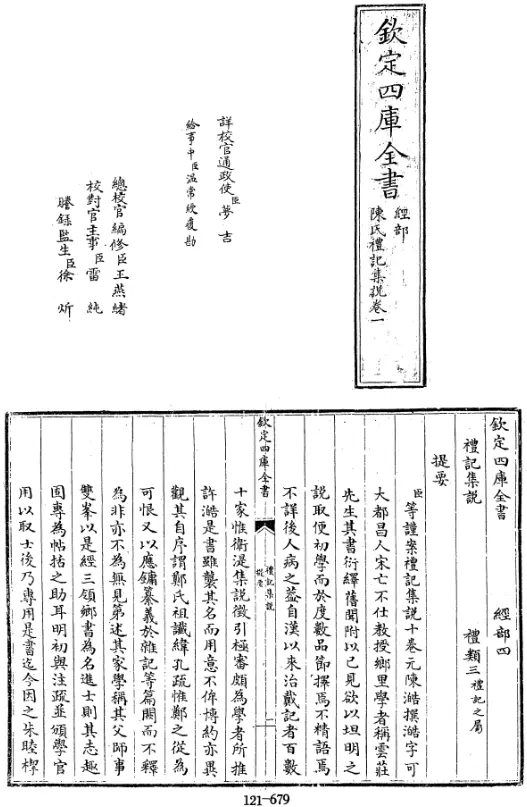 欽定四庫全書
經部
陳氏禮記集說卷一
詳校官通政使臣夢吉
給事中臣溫常綬覆勘
總校官編修臣王燕緒
校對官主事臣雷純
謄錄監生臣徐炘
欽定四庫全書 經部四
禮記集說 禮類三禮記之屬
提要
臣等謹案禮記集說十卷元陳澔撰澔字可
大都昌人宋亡不仕教授鄉里學者稱雲莊
先生其書衍繹舊聞附以己見欲以坦明之
說取便初學而於度數品節擇焉不精語焉
不詳後人病之蓋自漢以來治戴記者百數
欽定四庫全書 禮記集說 提要 一
十家惟衛湜集說徵引極審頗為學者所推
許澔是書雖襲其名而用意不侔博約亦異
觀其自序謂鄭氏祖讖緯孔疏惟鄭之從為
可恨又以應鏞纂義於雜記等篇闕而不釋
為非亦不為無見第述其家學稱其父師事
雙峯以是經三領鄉書為名進士則其志趣
固專為帖括之助耳明初與注疏並頒學官
用以取士後乃專用是書迄今因之朱睦㮮
121-679